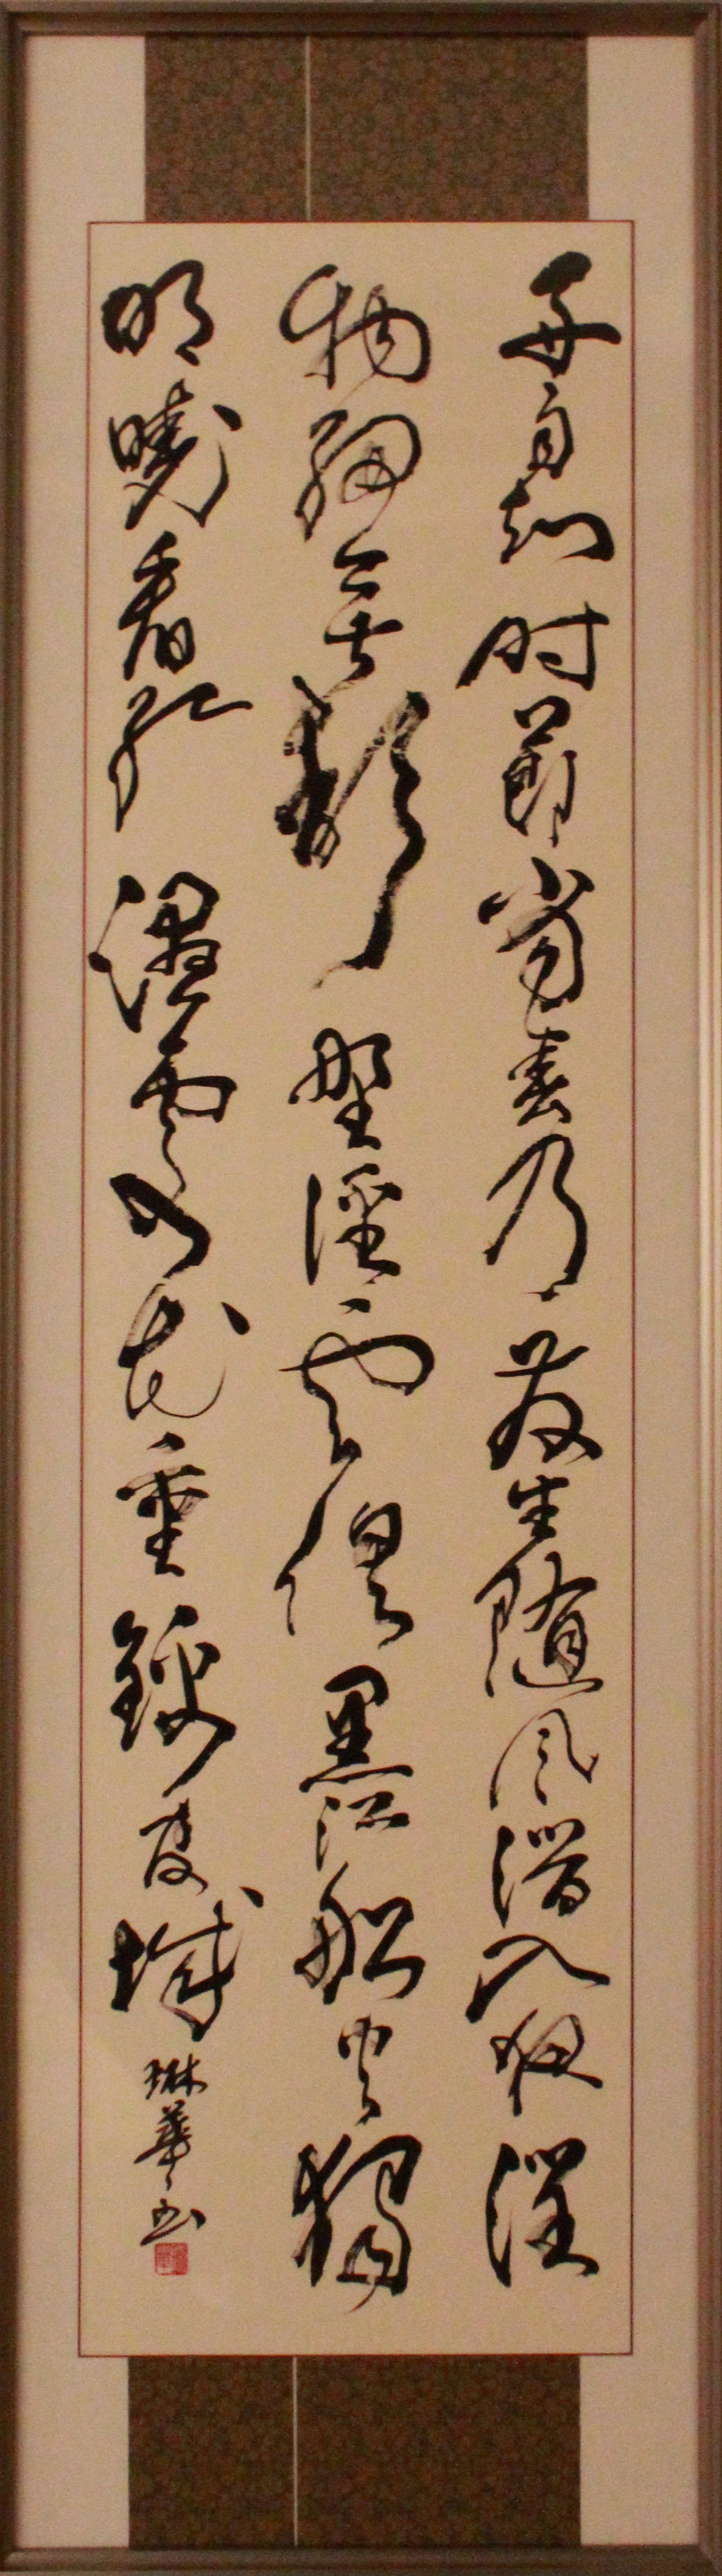 好雨知時節當春乃發生隨風潛入夜潤
物細無聲野徑雲俱黑江船火獨
明曉看紅濕處花重錦官城
琳華書